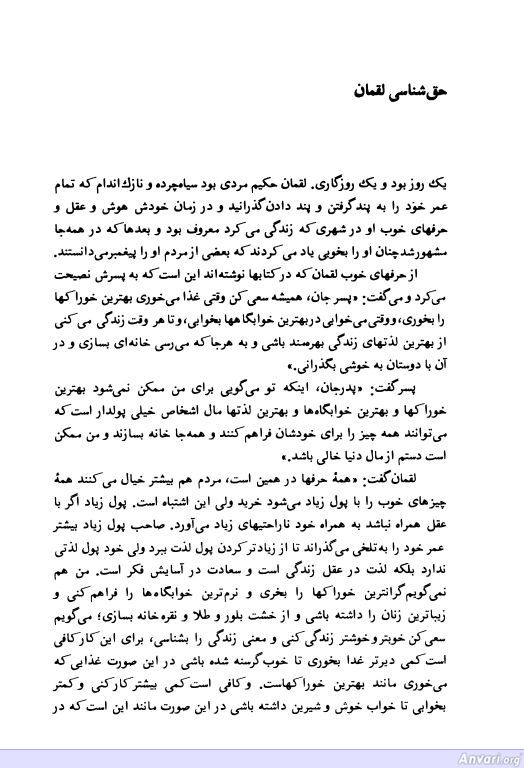 حق‌شناسی لقمان
یک روز بود و یک روزگاری. لقمان حکیم مردی بود سیاه‌چرده و نازک‌اندام که تمام
عمر خود را به پند گرفتن و پند دادن گذرانید و در زمان خودش هوش و عقل و
حرفهای خوب او در شهری که زندگی می‌کرد معروف بود و بعدها که در همه‌جا
مشهور شد چنان او را بخوبی یاد می‌کردند که بعضی از مردم او را پیغمبر می‌دانستند.
از حرفهای خوب لقمان که در کتابها نوشته‌اند این است که به پسرش نصیحت
می‌کرد و می‌گفت: «پسر جان، همیشه سعی کن وقتی غذا می‌خوری بهترین خوراکها
را بخوری، و وقتی می‌خوابی در بهترین خوابگاهها بخوابی، و تا هر وقت زندگی می‌کنی
از بهترین لذتهای زندگی بهره‌مند باشی و به هرجا که می‌رسی خانه‌ای بسازی و در
آن با دوستان به خوشی بگذرانی.»
پسر گفت: «پدرجان، اینکه تو می‌گویی برای من ممکن نمی‌شود بهترین
خوراکها و بهترین خوابگاه‌ها و بهترین لذتها مال اشخاص خیلی پولدار است که
می‌توانند همه چیز را برای خودشان فراهم کنند و همه‌جا خانه بسازند و من ممکن
است دستم از مال دنیا خالی باشد.»
لقمان گفت: «همهٔ حرفها در همین است، مردم هم بیشتر خیال می‌کنند همهٔ
چیزهای خوب را با پول زیاد می‌شود خرید ولی این اشتباه است. پول زیاد اگر با
عقل همراه نباشد به همراه خود ناراحتیهای زیاد می‌آورد. صاحب پول زیاد بیشتر
عمر خود را به تلخی می‌گذراند تا از زیادتر کردن پول لذت ببرد ولی خود پول لذتی
ندارد بلکه لذت در عقل زندگی است و سعادت در آسایش فکر است. من هم
نمی‌گویم گرانترین خوراکها را بخری و نرم‌ترین خوابگاه‌ها را فراهم کنی و
زیباترین زنان را داشته باشی و از خشت بلور و طلا و نقره خانه بسازی؛ می‌گویم
سعی کن خوبتر و خوشتر زندگی کنی و معنی زندگی را بشناسی، برای این کار کافی
است کمی دیرتر غدا بخوری تا خوب گرسنه شده باشی در این صورت غذایی که
می‌خوری مانند بهترین خوراکهاست. و کافی است کمی بیشتر کار کنی و کمتر
بخوابی تا خواب خوش و شیرین داشته باشی در این صورت مانند این است که در
Anvari.org